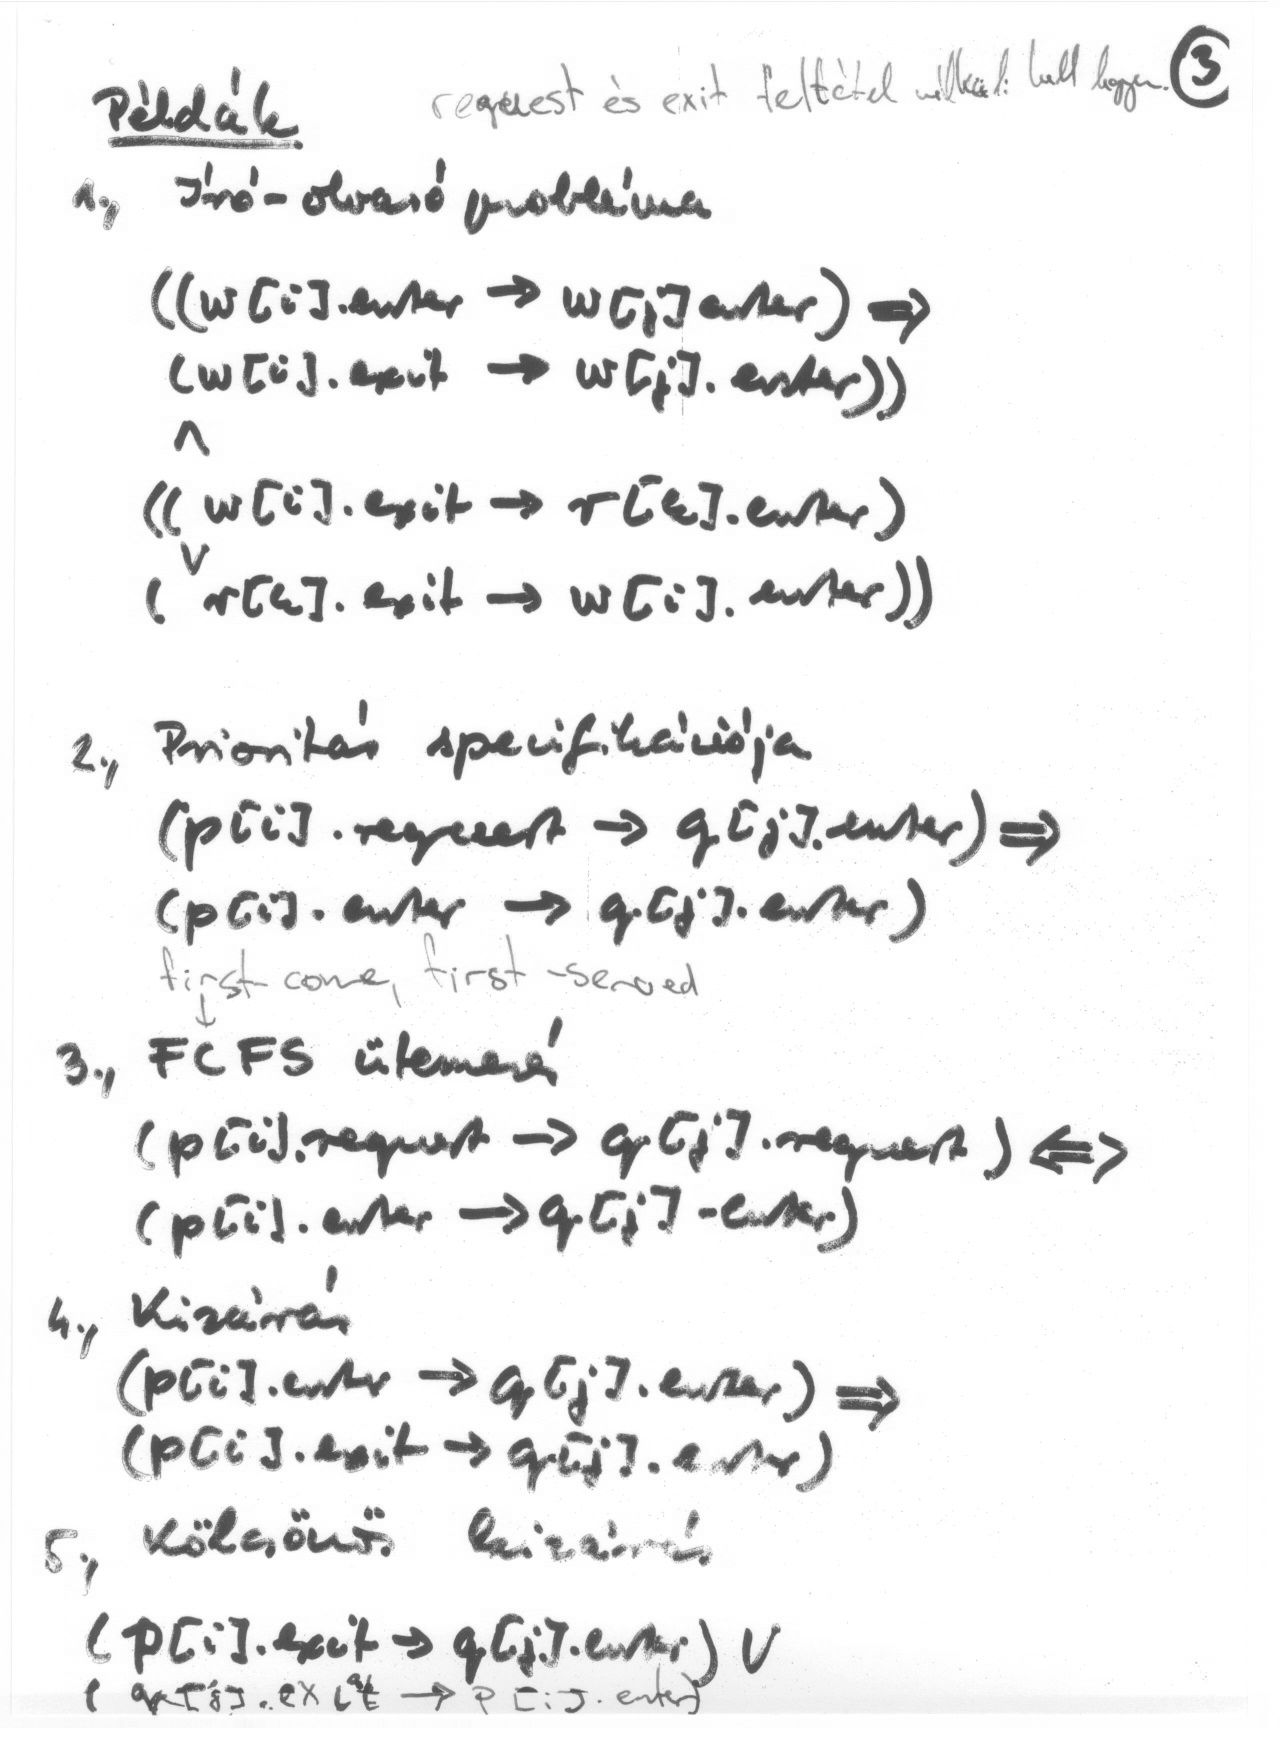 request és exit feltétel nélküli kell legyen. 3
Példák
1., Író-olvasó probléma
((w[i].enter → w[j] enter) ⇒
(w[i].exit → w[j].enter))
∧
((w[i].exit → r[k].enter)
∨
(r[k].exit → w[i].enter))
2., Prioritás specifikációja
(p[i].request → q[j].enter) ⇒
(p[i].enter → q[j].enter)
first come, first-served
↓
3., FCFS ütemezés
(p[i].request → q[j].request) ⇔
(p[i].enter → q[j].enter)
4., Kizárás
(p[i].enter → q[j].enter) ⇒
(p[i].exit → q[j].enter)
5., Kölcsönös kizárás
(p[i].exit → q[j].enter) ∨
(q[j].exit → p[i].enter)